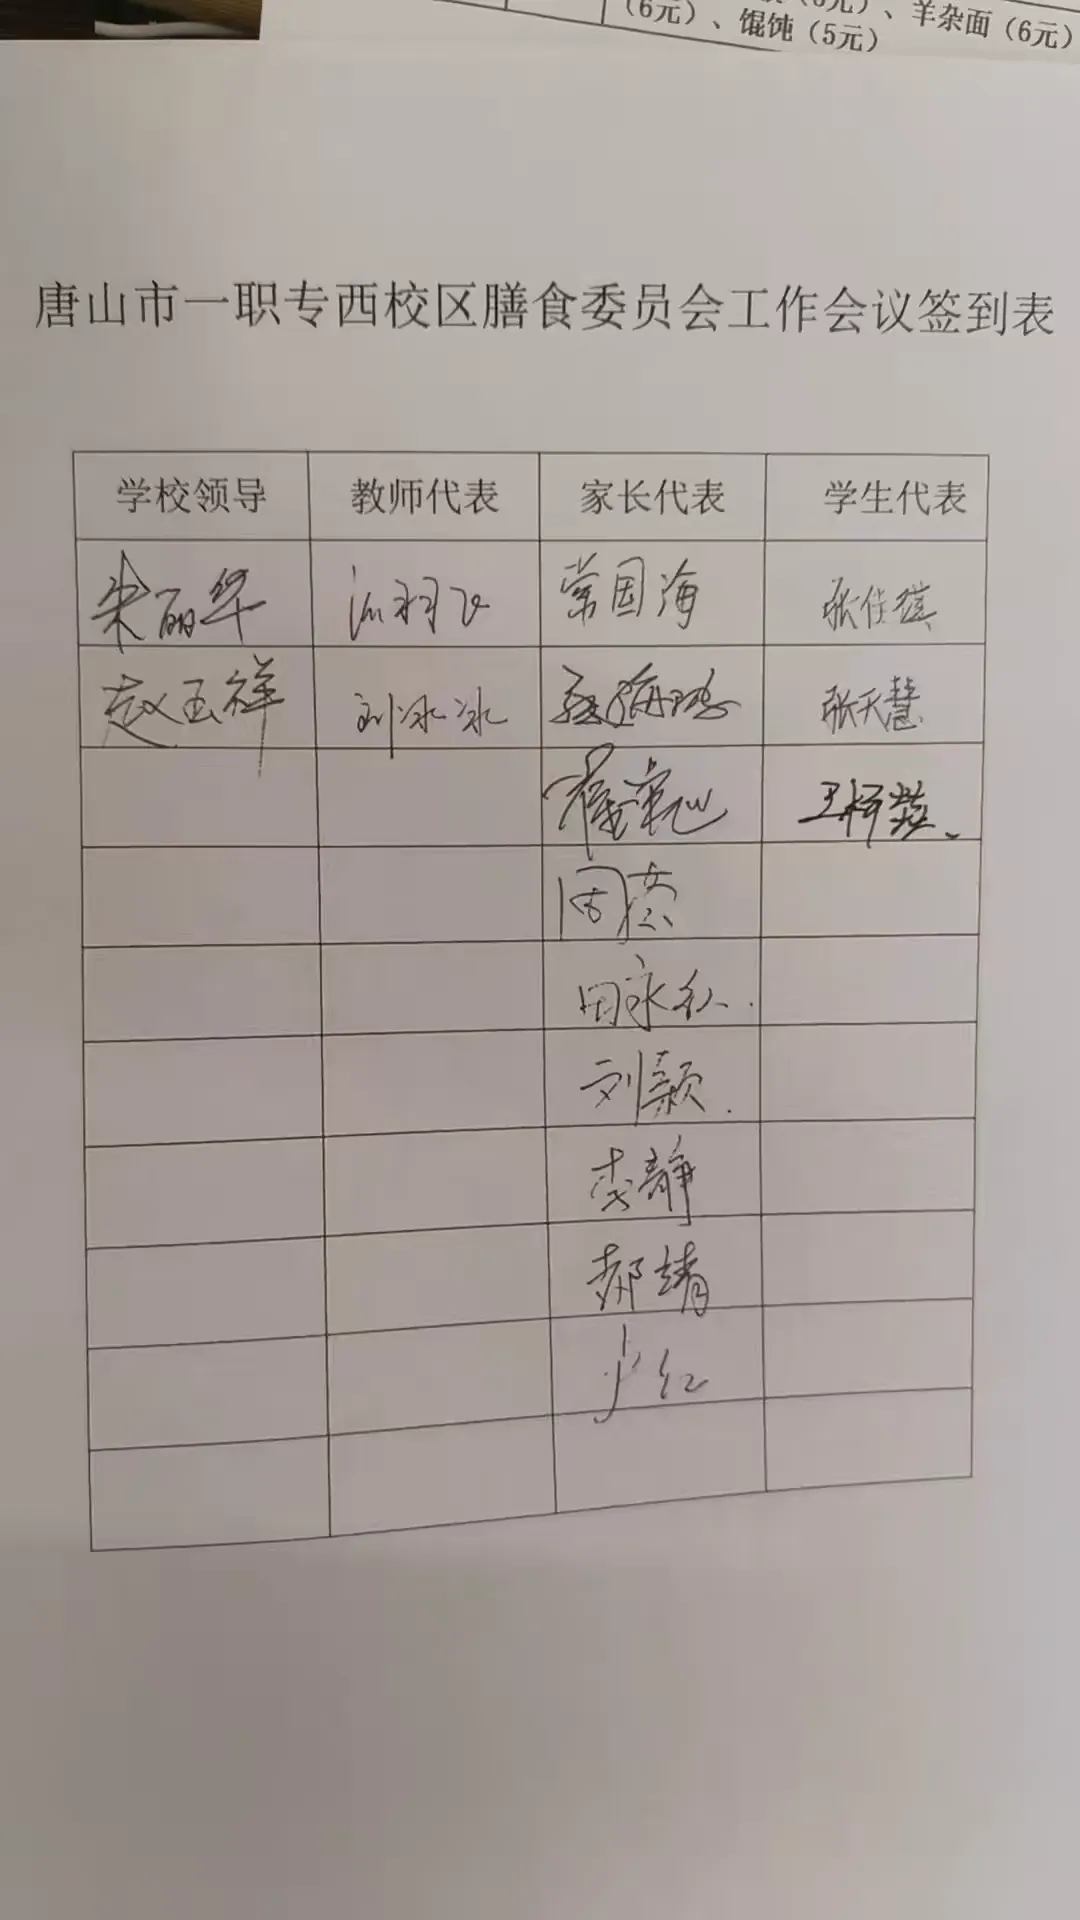 （6元）、羊杂面（6元）
（6元）、馄饨（5元）
唐山市一职专西校区膳食委员会工作会议签到表
学校领导 教师代表 家长代表 学生代表
朱丽华 常国海 张佳琪
赵玉祥 刘冰冰 张天慧
田永利
刘颖
李静
郝靖
卢红